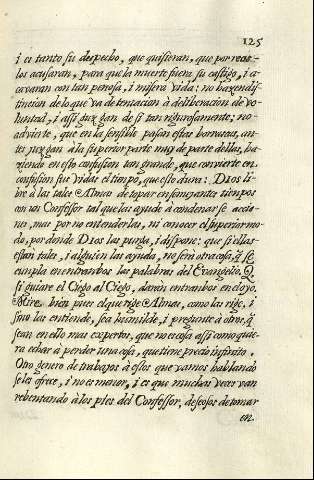 125
i es tanto su despecho, que quisieran, que por reas
los acusaran, para que la muerte fuera su castigo, i a-
cavaran con tan penosa, i misera vida: no hazen dis-
tincion de lo que va de tentacion à deliberacion de vo-
luntad, i assi juzgan de si tan rigurosamente: no
advierte, que en la sensible pasan estas borrascas, an-
tes juzgan à la superior parte muy de parte dellas, ha-
ziendo en esso confusion tan grande, que convierte en
confusion sus vidas el tiempo, que esso dura: DIOS li-
bre à las tales Almas de topar en semejantes tiempos
con un Confessor tal que las ayude à condenar se accio-
nes, mas por no entenderlas, ni conocer el superior mo-
do, por donde DIOS las purga, i dispone: que si ellas
estan tales, i alguien las ayuda, no serà otra cosa, q̃ se
cumpla en entranbos las palabras del Evangelio, Q̃
si guiare el Ciego al Ciego, daràn entranbos en el oyo.
Mire bien pues el que rige Almas, como las rige, i
sino las entiende, sea humilde, i pregunte à otros, q̃
sean en ello mas expertos, que no es cosa assi como quie-
ra echar a perder una cosa, que tiene precio infinito.
Otro genero de trabajos à estos que vamos hablando
se les ofrece, i no es menor, i es que muchas vezes van
rebentando à los pies del Confessor, deseosos de tomar
en